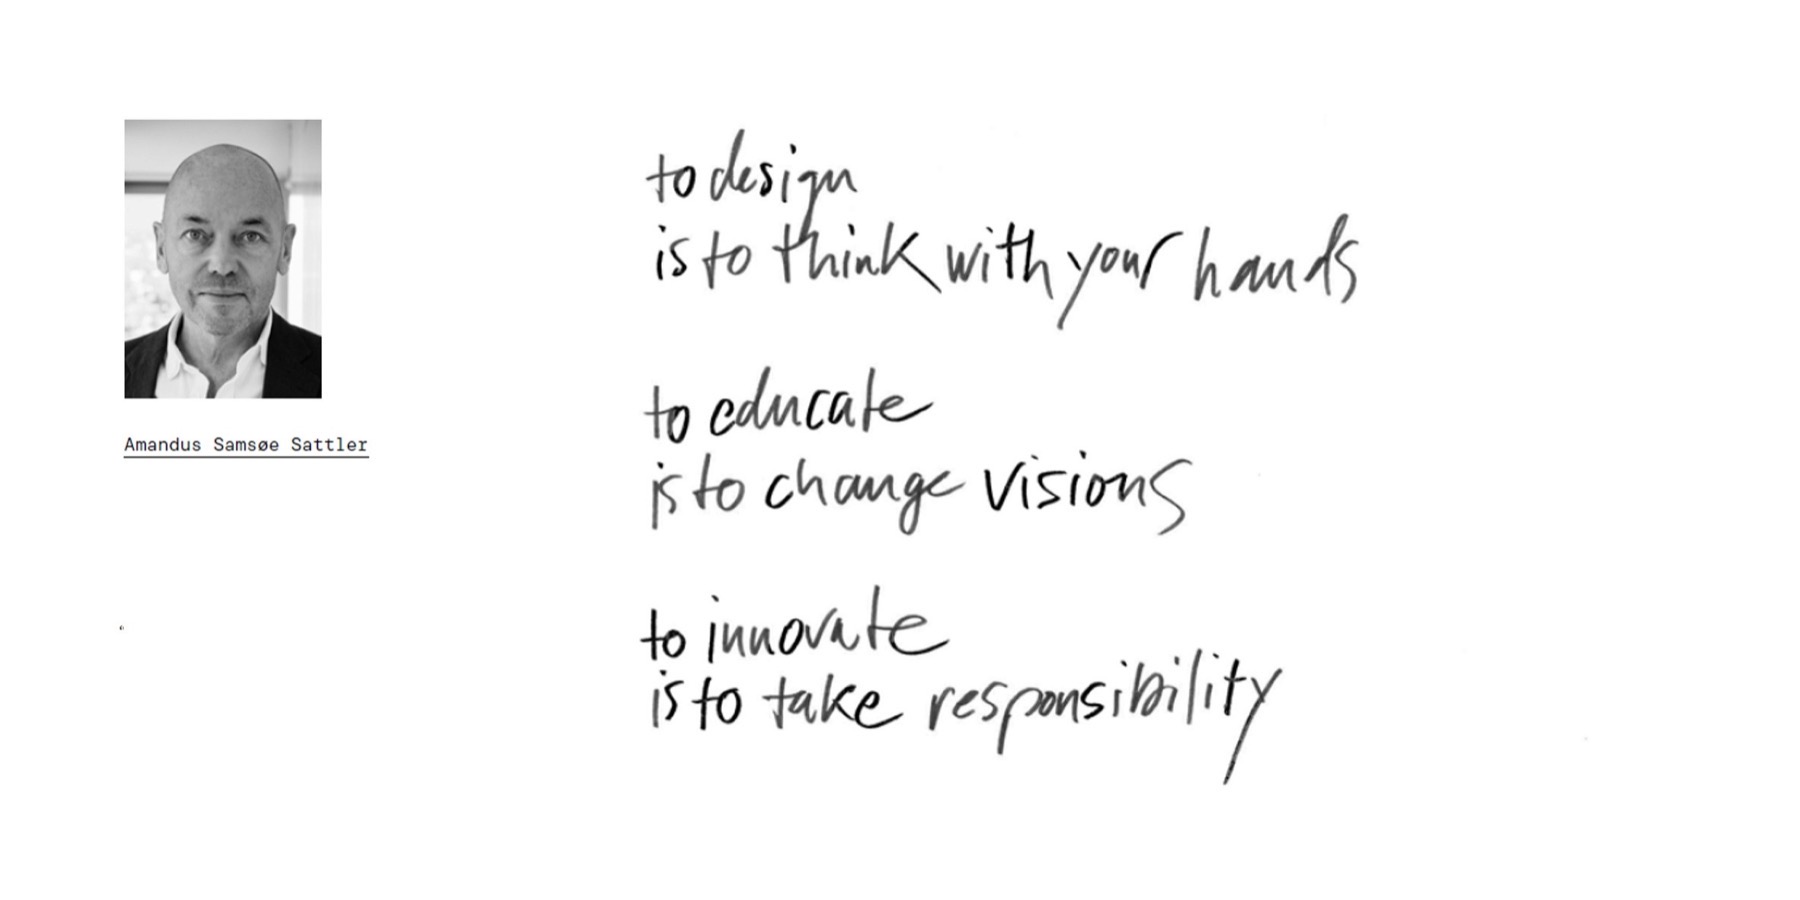 Amandus Samsøe Sattler
to design
is to think with your hands
to educate
is to change visions
to innovate
is to take responsibility